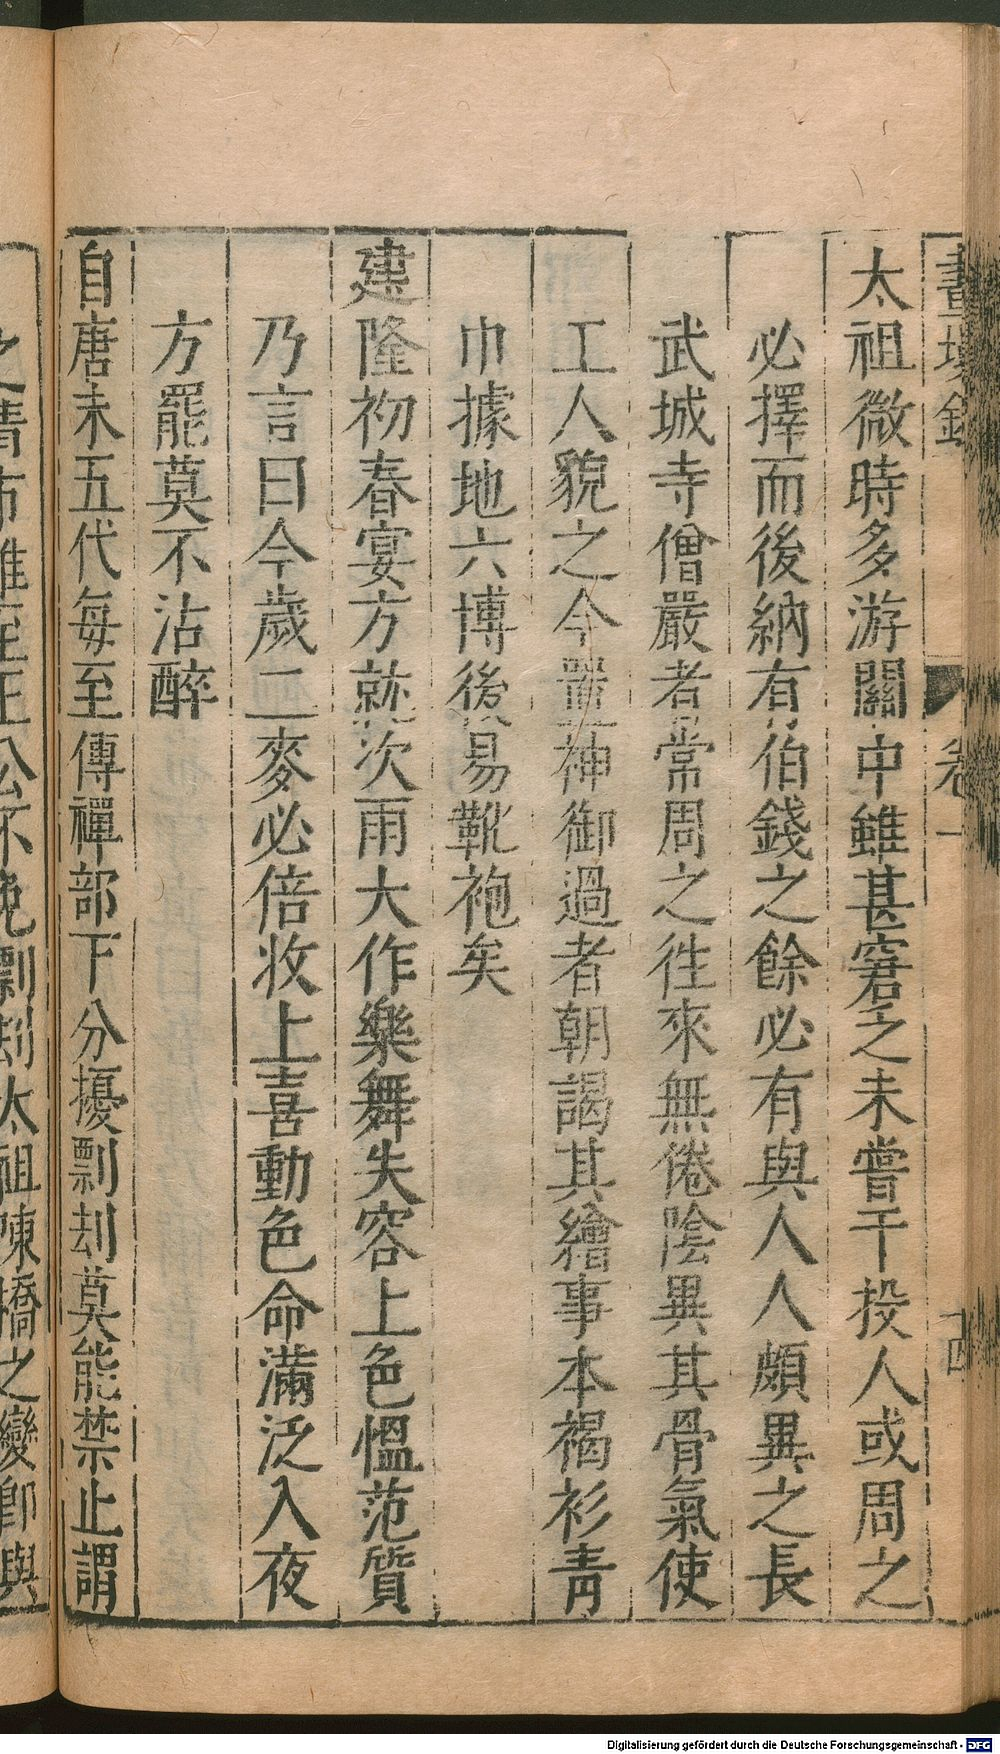 畫墁錄 卷一 十四
太祖微時多游關中雖甚窘乏未嘗干投人或周之
必擇而後納有伯錢之餘必有與人人頗異之長
武城寺僧嚴者常周之徃來無倦陰異其骨氣使
工人貌之今置神御過者朝謁其繪事本褐衫青
巾據地六博後易靴袍矣
建隆初春宴方就次雨大作樂舞失容上色愠范質
乃言曰今歲二麥必倍收上喜動色命滿泛入夜
方罷莫不沾醉
自唐末五代每至傳禪部下分擾剽刦莫能禁止謂
之靖市雖至王公不免剽刦太祖陳橋之變即與
Digitalisierung gefördert durch die Deutsche Forschungsgemeinschaft - DFG